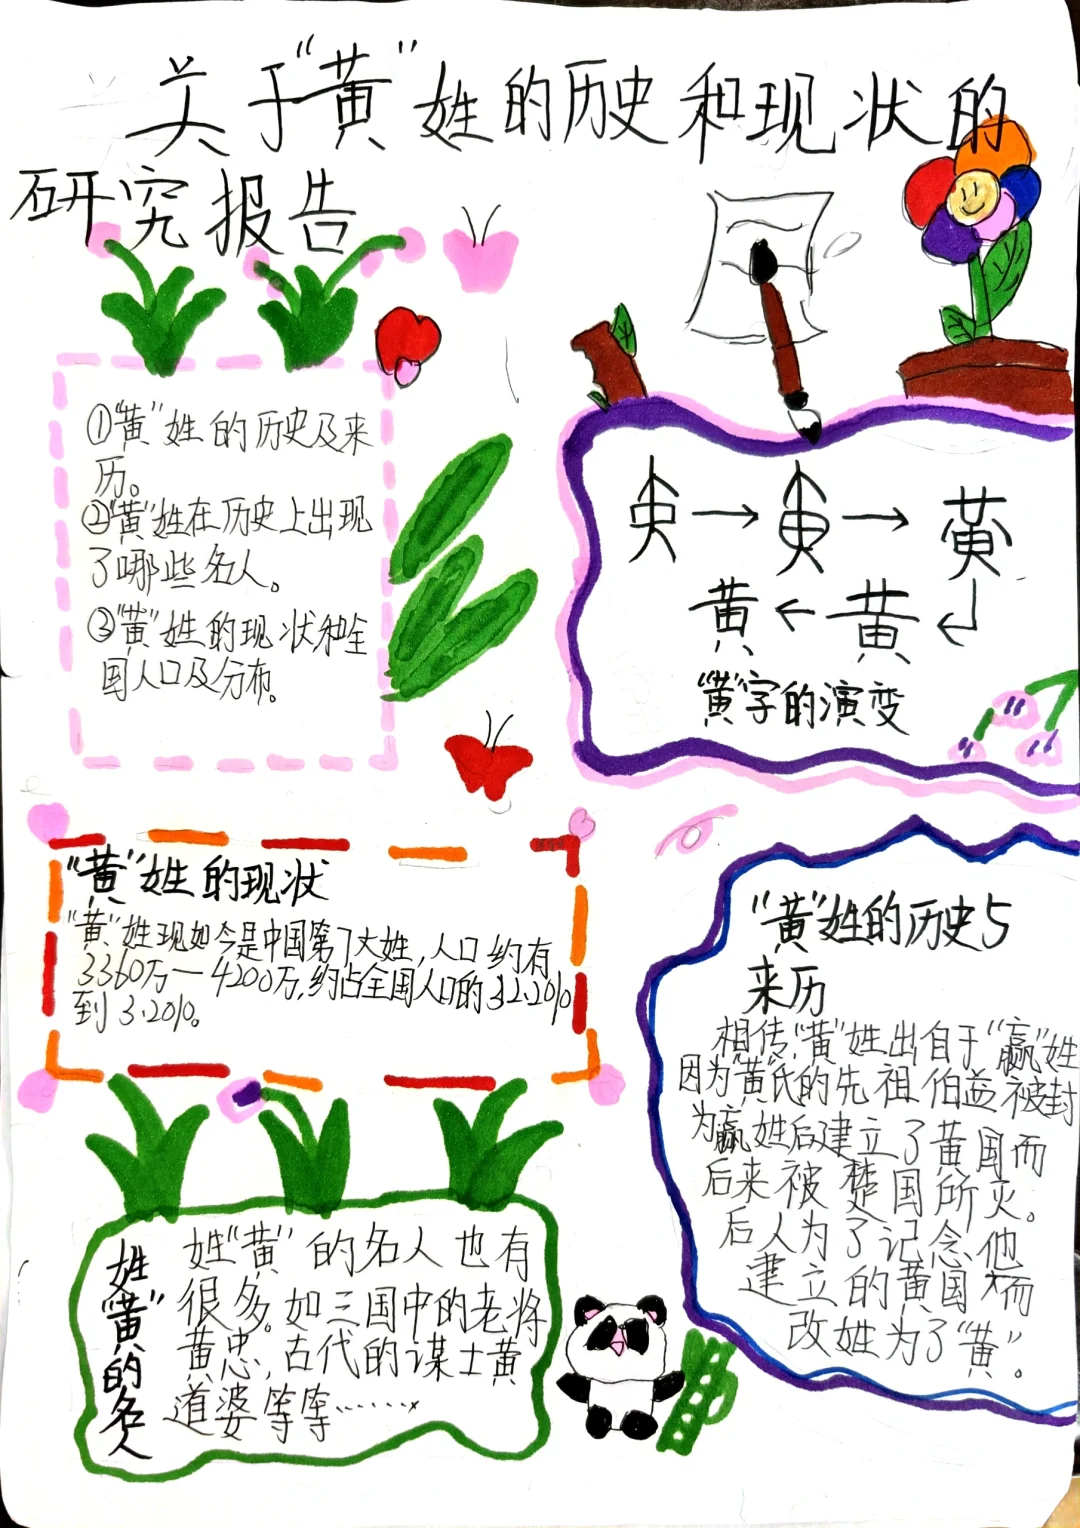 关于“黄”姓的历史和现状的
研究报告
①“黄”姓的历史及来
历。
②“黄”姓在历史上出现
了哪些名人。
③“黄”姓的现状和全
国人口及分布。
黄
黄 ← 黄
“黄”字的演变
“黄”姓的现状
“黄”姓现如今是中国第7大姓,人口约有
3360万—4200万,约占全国人口的
到3.20%。
“黄”姓的历史与
来历
相传,“黄”姓出自于“嬴”姓
因为黄氏的先祖伯益被封
为嬴姓后建立了黄国而
后来被楚国所灭。
后人为了记念他
建立的黄国而
改姓为了“黄”。
姓“黄”的名人
姓“黄”的名人也有
很多。如三国中的老将
黄忠,古代的谋士黄
道婆等等……